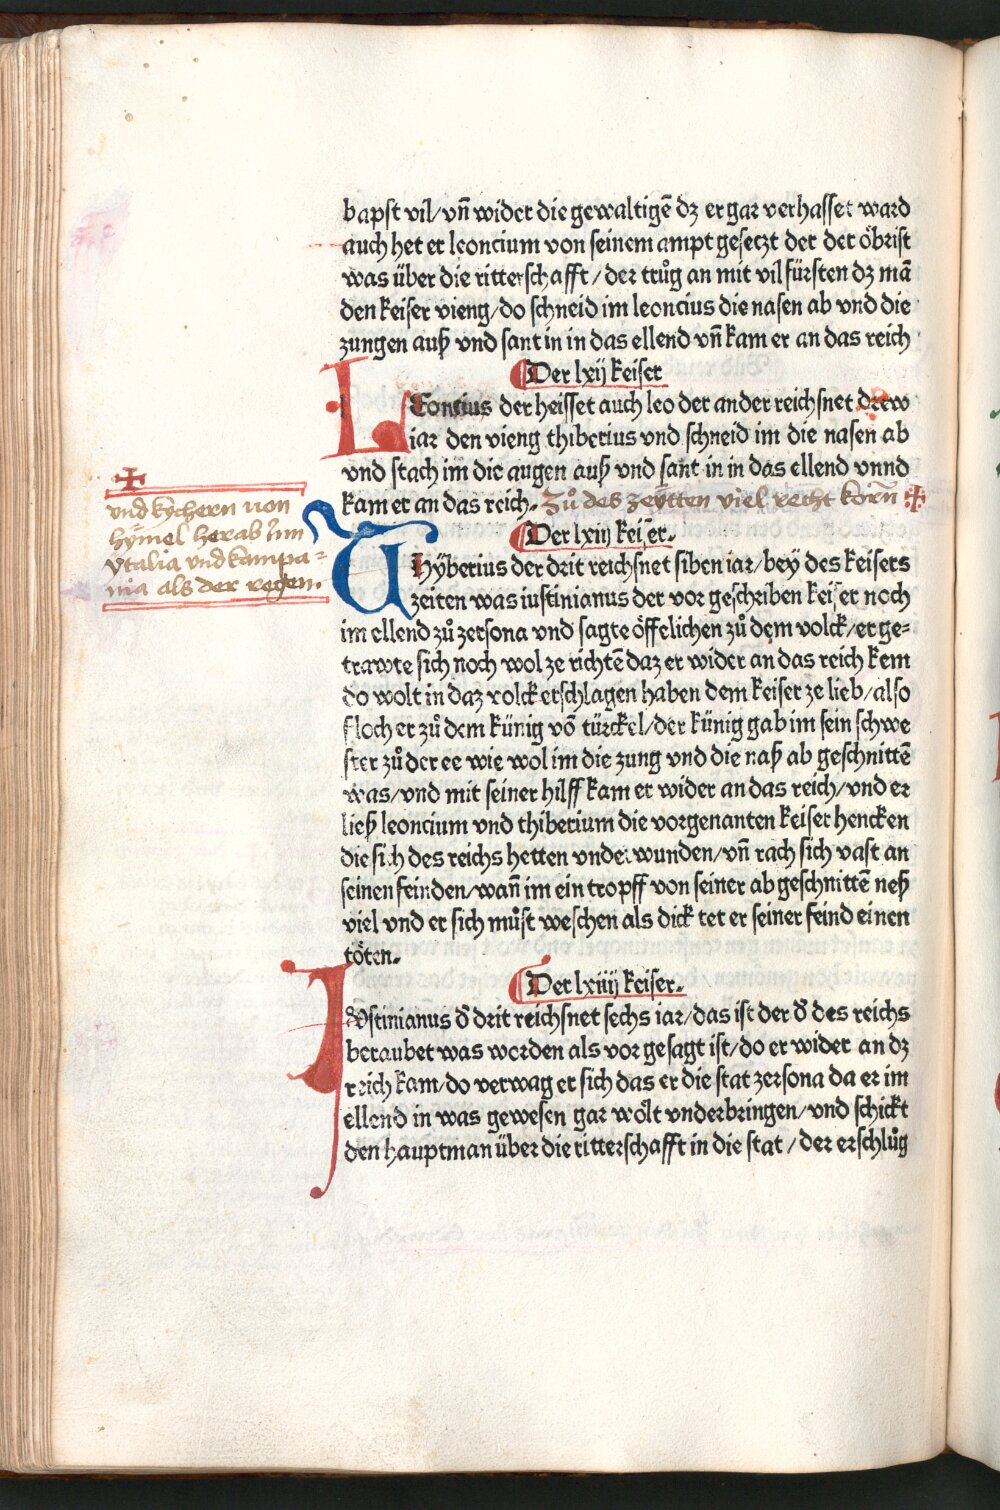 bapst vil/ vn̄ wider die gewaltigē dz er gar verhasset ward
auch het er leoncium von seinem ampt gesetzt der der öbrist
was über die ritterschafft/ der trůg an mit vil fürsten dz mā
den keiser vieng/ do schneid im leoncius die nasen ab vnd die
zungen auß vnd sant in in das ellend vn̄ kam er an das reich
Der lxij keiser
LEoncius der heisset auch leo der ander reichsnet drew
iar den vieng thiberius vnd schneid im die nasen ab
vnd stach im die augen auß vnd sant in in das ellend vnnd
kam er an das reich. Zů des zeÿtten viel recht korn̄ ✠
✠
vnd kychern von
hÿmel herab Inn
ytalia vnd kampa=
nia als der regen.
Der lxiij keiser.
THÿberius der drit reichsnet siben iar/ bey des keisers
zeiten was iustinianus der vor geschriben keiser noch
im ellend zů zersona vnd sagte öffelichen zů dem volck/ er ge=
trawte sich noch wol ze richtē daz er wider an das reich kem
do wolt in daz volck erschlagen haben dem keiser ze lieb/ also
floch er zů dem künig vō türckel/ der künig gab im sein schwe
ster zů der ee wie wol im die zung vnd die naß ab geschnittē
was/ vnd mit seiner hilff kam er wider an das reich/ vnd er
ließ leoncium vnd thiberium die vorgenanten keiser hencken
die sich des reichs hetten vnderwunden/ vn̄ rach sich vast an
seinen feinden/ wan̄ im ein tropff von seiner ab geschnittē neß
viel vnd er sich můst weschen als dick tet er seiner feind einen
töten.
Der lxiiij keiser.
IVstinianus d̄ drit reichsnet sechs iar/ das ist der d̄ des reichs
beraubet was worden als vor gesagt ist/ do er wider an dz
reich kam/ do verwag er sich das er die stat zersona da er im
ellend in was gewesen gar wölt vnderbringen/ vnd schickt
den hauptman über die ritterschafft in die stat/ der erschlůg